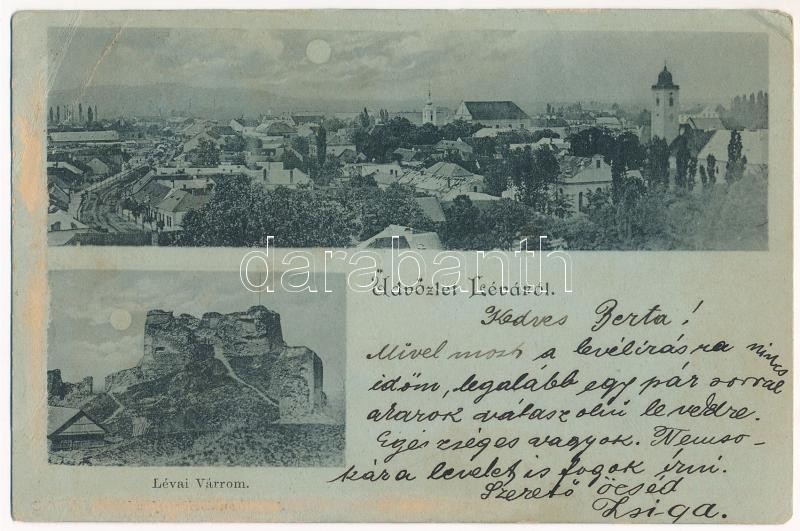 Üdvözlet Léváról.
darabanth
Kedves Berta!
Mivel most a levélirásra nincs
időm, legalább egy pár sorral
akarok válaszolni levedre.
Egészséges vagyok. Nemso-
kára levelet is fogok írni.
Szerető öcséd
Zsiga.
Lévai Várrom.